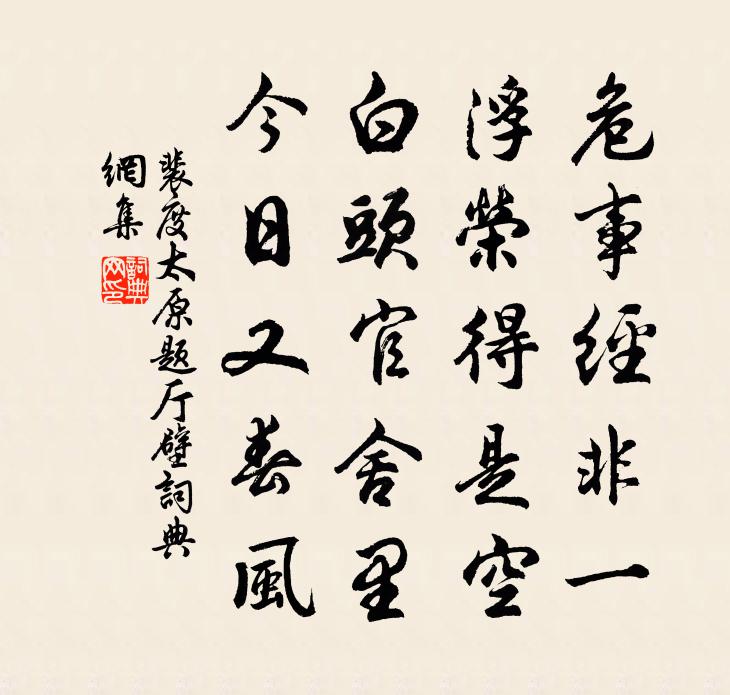 危事經非一
浮榮得是空
白頭官舍里
今日又春風
裴度太原题厅壁詞典
網集
詞典網印